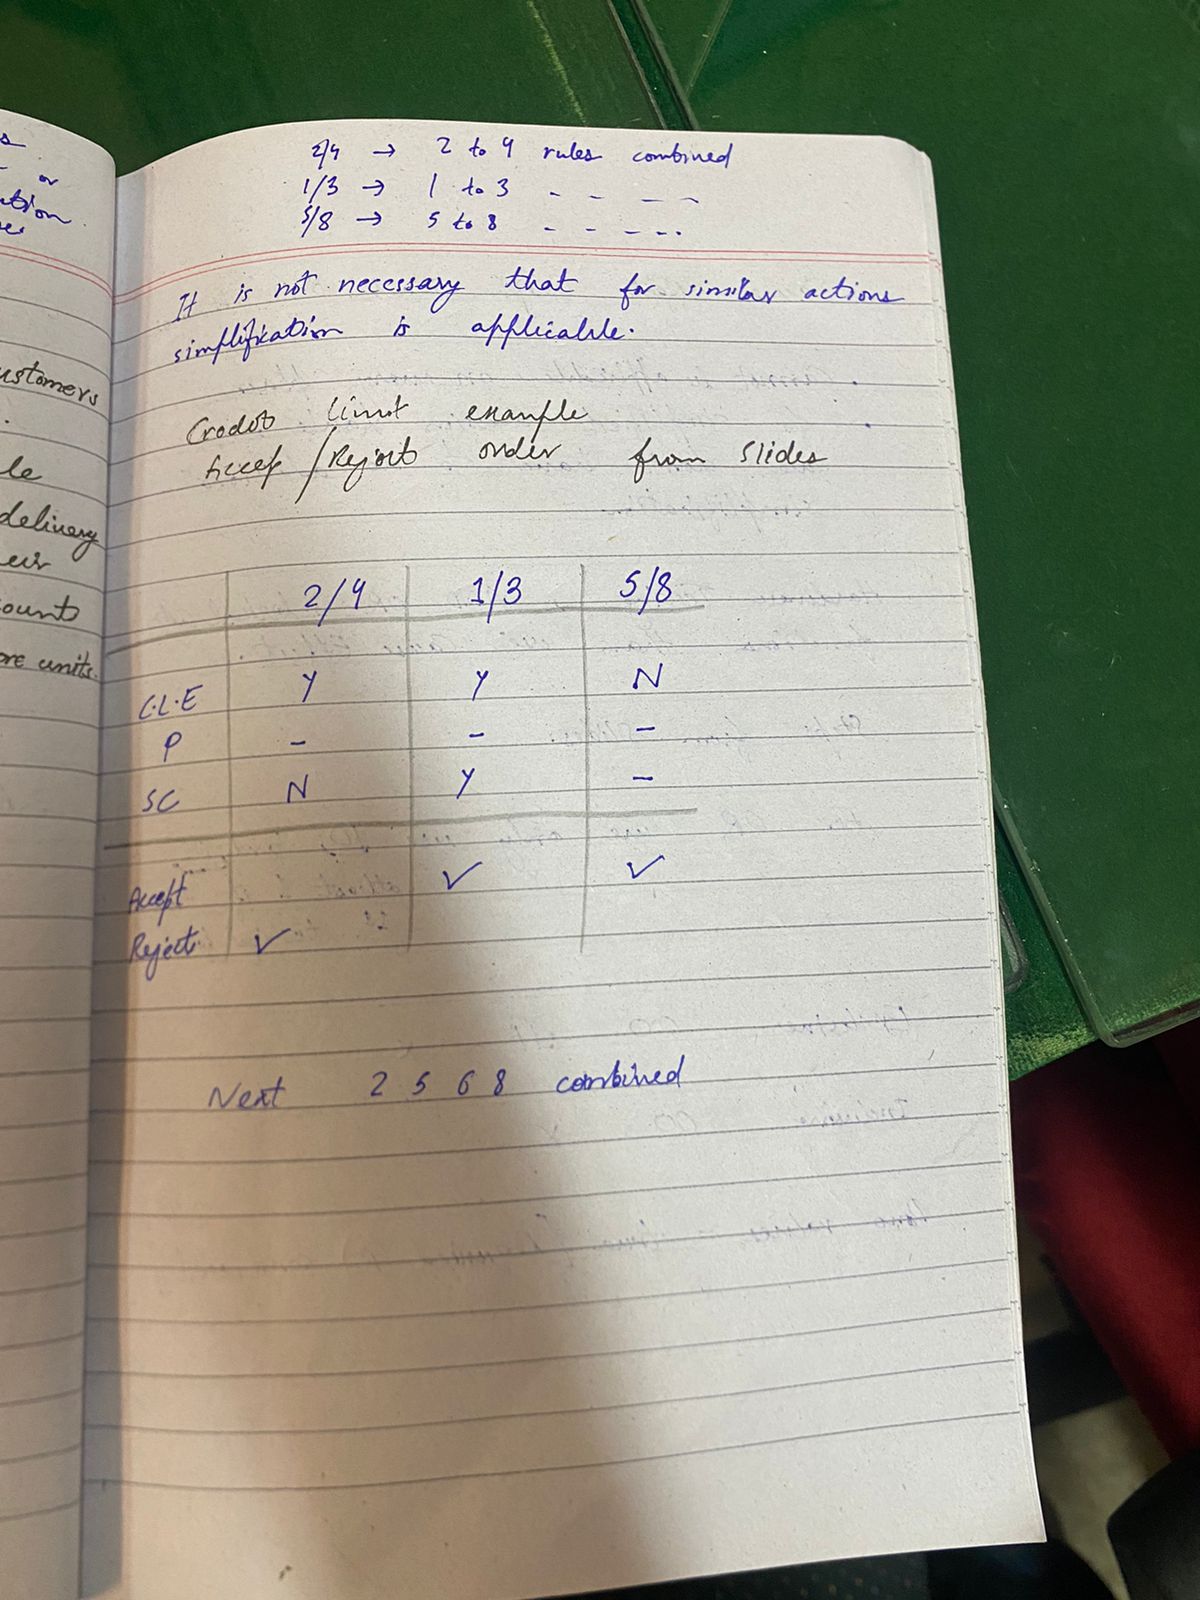 s
or
ation
ustomers
le
delivery
eir
ounts
ore units.
2/4 → 2 to 4 rules combined
1/3 → 1 to 3 - - - -
5/8 → 5 to 8 - - - - -
It is not necessary that for similar actions
simplification is applicable.
Credot limit example
Accep / Reject order from slides
2/4 1/3 5/8
C.L.E Y Y N
P - - -
SC N Y -
Accept ✓ ✓
Reject ✓
Next 2 5 6 8 combined